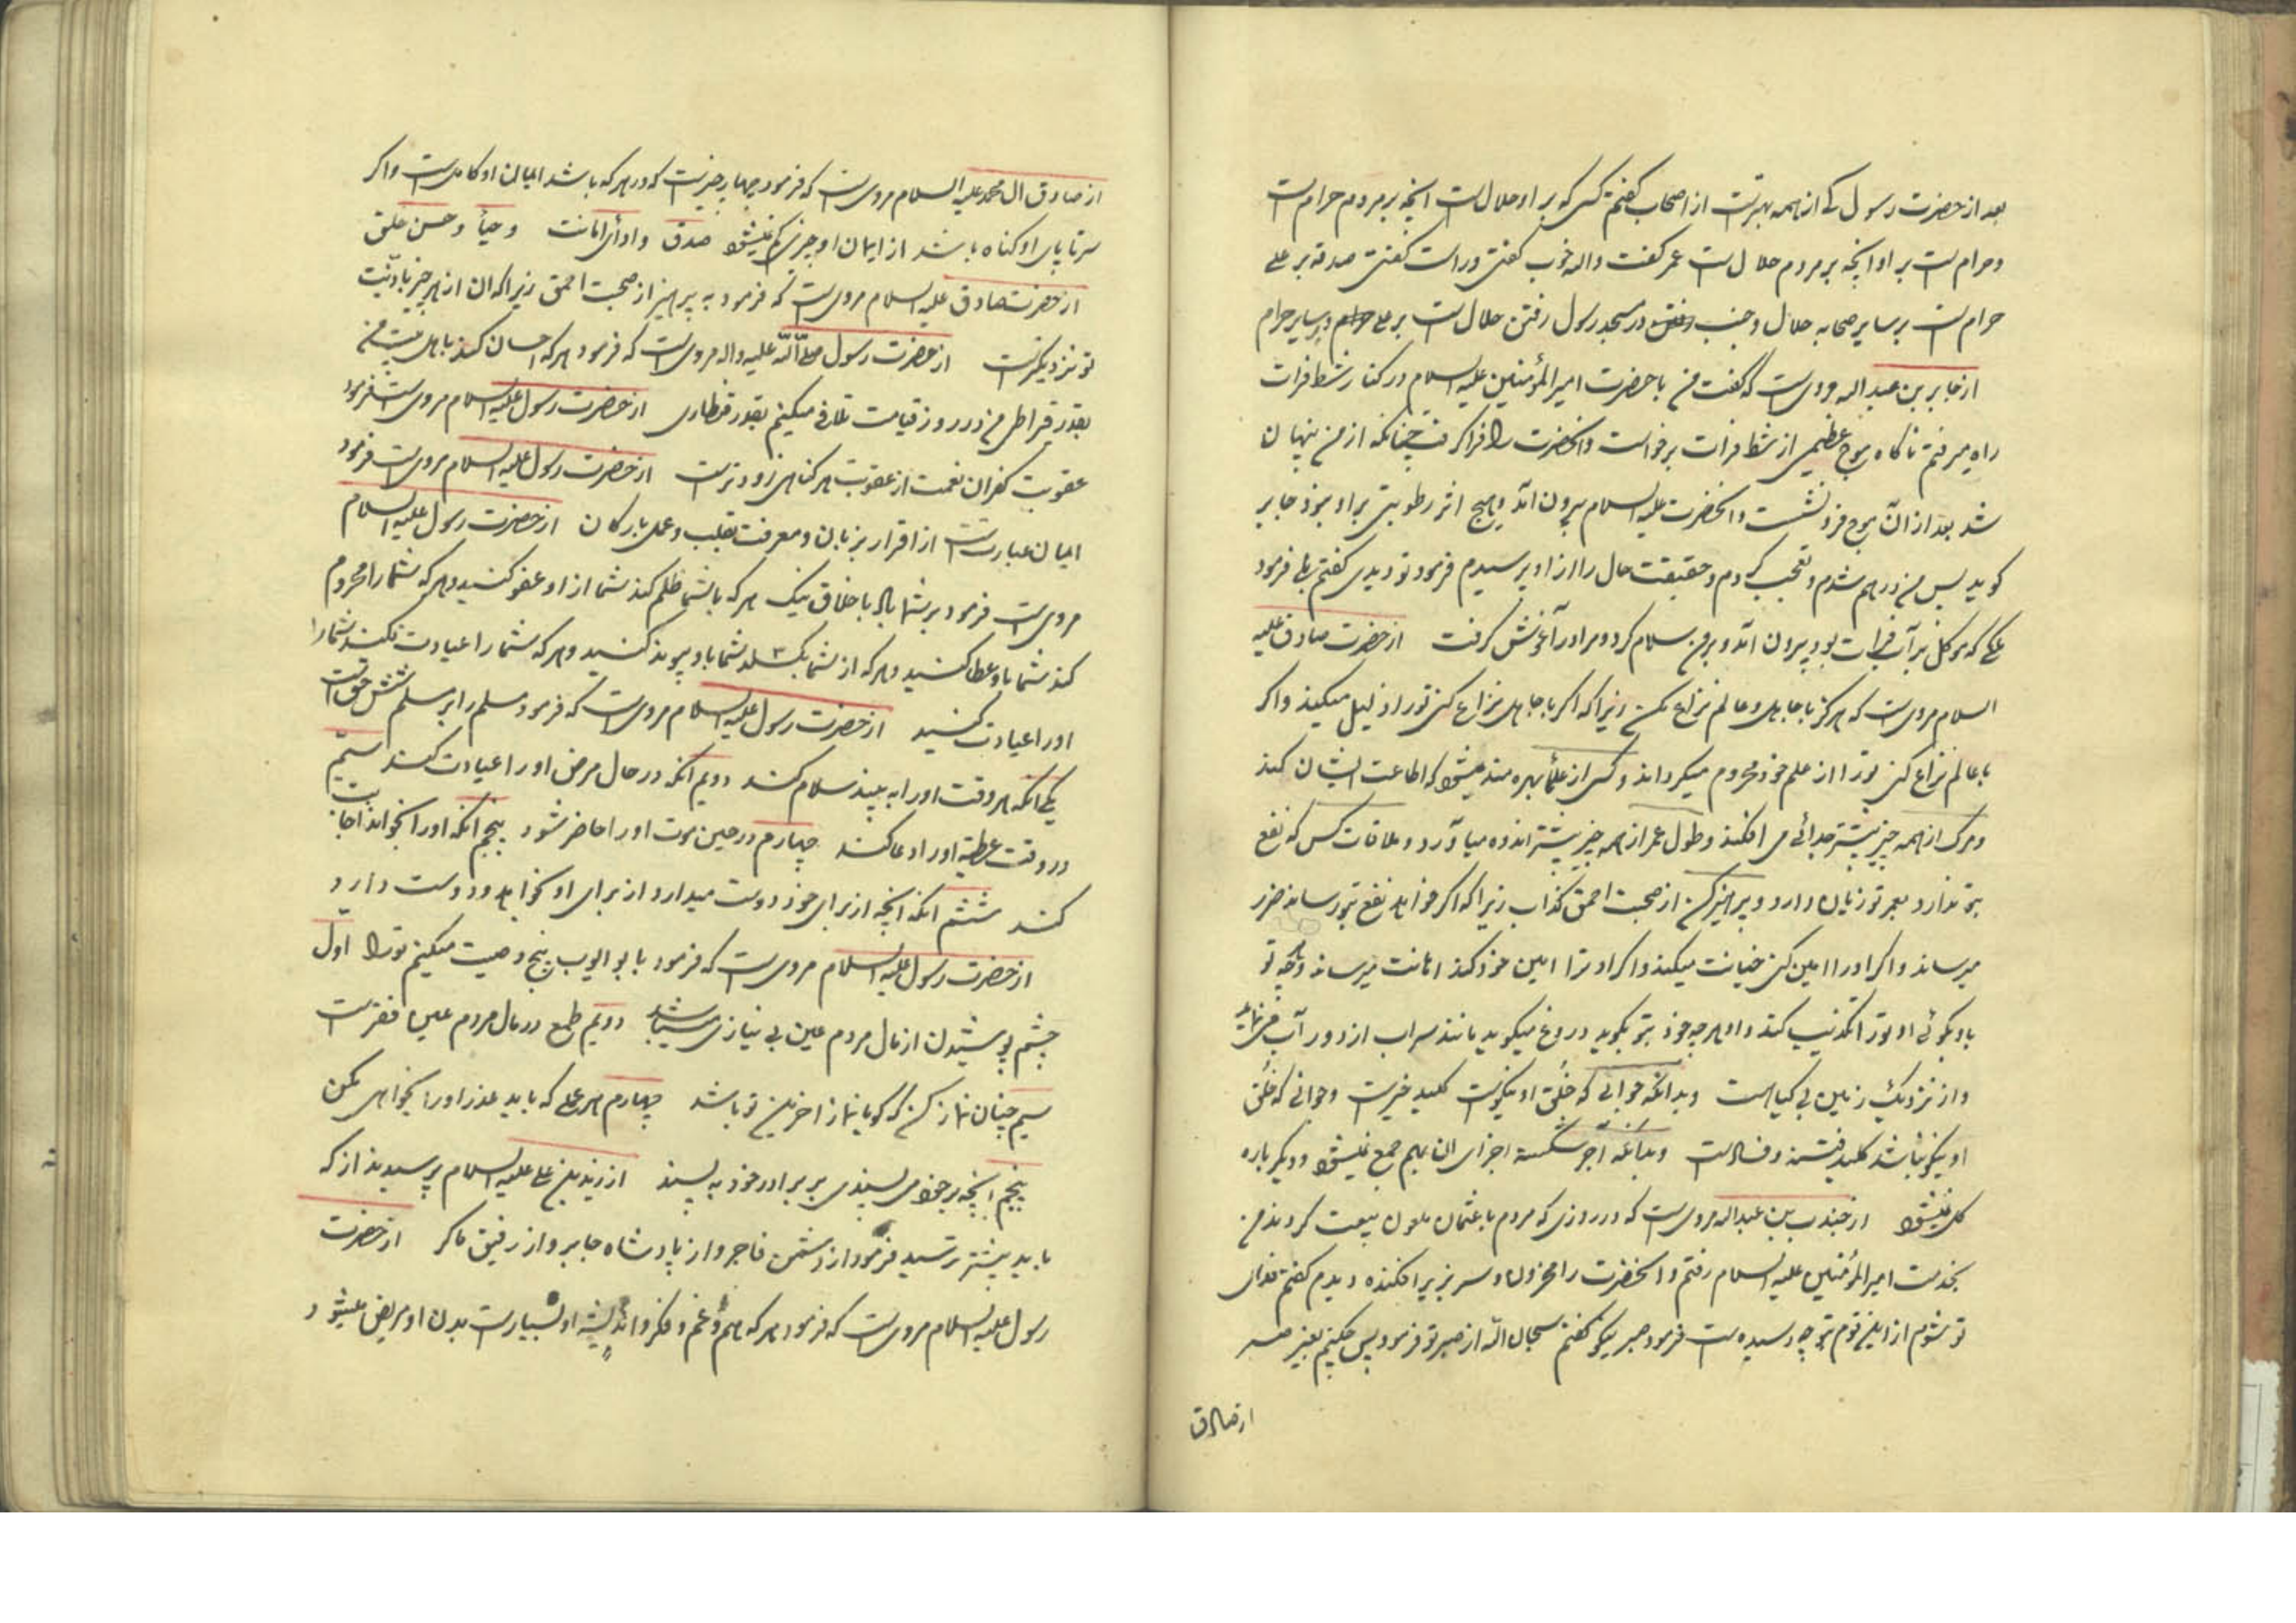 بعد از حضرت رسول که از همه بهترست از اصحاب گفتم کسی که بر او حلالست آنچه بر مردم حرامست
و حرامست بر او آنچه بر مردم حلالست عمر گفت واله خوب گفتی و راست گفتی صدقه بر علی
حرامست بر سایر صحابه حلال و جنب در مسجد رسول رفتن حلالست بر علی و بر سایر حرام
از جابر بن عبداله مرویست که گفت من با حضرت امیر المؤمنین علیه السلام در کنار شط فرات
راه میرفتم ناگاه موج عظیمی از شط فرات برخواست و آنحضرت را فرا گرفت چنانکه از من پنهان
شد بعد از آن موج فرو نشست و آنحضرت علیه السلام بیرون آمد و هیچ اثر رطوبتی بر او نبود جابر
گوید پس من درهم شدم و تعجب کردم و حقیقت حال را از او پرسیدم فرمود تو دیدی گفتم بلی فرمود
ملکی که موکل بر آب فرات بود بیرون آمد و بر من سلام کرد و مرا در آغوش گرفت از حضرت صادق علیه
السلام مرویست که هرگز با جاهل و عالم نزاع مکن زیرا که اگر با جاهل نزاع کنی تو را ذلیل میکند و اگر
با عالم نزاع کنی تو را از علم خود محروم میگرداند و کسی از علما بهره مند میشود که اطاعت ایشان کند
و مرگ از همه چیز بیشتر جدائی می افکند و طول عمر از همه چیز بیشتر اندوه میآورد و ملاقات کسی که نفع
بتو ندارد بعمر تو زیان دارد و پرهیز کن از صحبت احمق کذاب زیرا که اگر خواهد نفع بتو رساند ضرر
میرساند و اگر او را امین کنی خیانت میکند و اگر او ترا امین خود کند اهانت میرساند و آنچه تو
باو گوئی او تو را تکذیب کند و او هر چه خود بتو گوید دروغ میگوید مانند سراب از دور آب مینماید
و از نزدیک زمین بی گیاهست و بدانکه جوانی که خلق او نیکوست کلید خیرست و جوانی که خلق
او نیکو نباشد کلید فتنه و فسادست و بدانکه آجر شکسته اجزای آن بهم جمع نمیشود و دیگر باره
گل نمیشود از جندب بن عبداله مرویست که در روزی که مردم با عثمان ملعون بیعت کردند من
بخدمت امیر المؤمنین علیه السلام رفتم و آنحضرت را محزون و سر بزیر افکنده دیدم گفتم فدای
تو شوم از این قوم بتو چه رسیده است فرمود صبر نیکو گفتم سبحان الله از صبر تو فرمود پس چکنم بغیر صبر
از صادق
از صادق ال محمد علیه السلام مرویست که فرمود چهار چیزست که در هر که باشد ایمان او کاملست و اگر
سر تا پای او گناه باشد از ایمان او چیزی کم نمیشود صدق و ادأی امانت و حیأ و حسن خلق
از حضرت صادق علیه السلام مرویست که فرمود به پرهیز از صحبت احمق زیرا که آن از هر چیز باذیت
تو نزدیکترست از حضرت رسول صلی الله علیه واله مرویست که فرمود هر که احسان کند باهل بیت من
بقدر قیراطی من در روز قیامت تلافی میکنم بقدر قنطاری از حضرت رسول علیه السلام مرویست فرمود
عقوبت کفران نعمت از عقوبت هر گناهی زودترست از حضرت رسول علیه السلام مرویست فرمود
ایمان عبارتست از اقرار بزبان و معرفت بقلب و عمل بارکان از حضرت رسول علیه السلام
مرویست فرمود بر شما باد باخلاق نیک هر که با شما ظلم کند شما از او عفو کنید و هر که شما را محروم
کند شما باو عطا کنید و هر که از شما بگسلد شما باو پیوند کنید و هر که شما را عیادت نکند شما
او را عیادت کنید از حضرت رسول علیه السلام مرویست که فرمود مسلم را بر مسلم شش حق است
یکی آنکه هر وقت او را به بیند سلام کند دویم آنکه در حال مرض او را عیادت کند سیّم
در وقت عطسه او را دعا کند چهارم در حین موت او را حاضر شود پنجم آنکه او را بخواند اجابت
کند ششم آنکه آنچه از برای خود دوست میدارد از برای او نیز دوست دارد
از حضرت رسول علیه السلام مرویست که فرمود با بو ایوب پنج وصیت میکنم تو را اول
چشم پوشیدن از مال مردم عین بی نیازی میباشد دویّم طمع در مال مردم عین فقرست
سیم چنان نماز کن که گویا نماز اخرین تو باشد چهارم هر عملی که باید عذر او را بخواهی مکن
پنجم آنچه بر خود می پسندی بر برادر خود به پسند از زید بن علی علیه السلام پرسیدند از که
باید بیشتر ترسید فرمود از دشمن فاجر و از پادشاه جابر و از رفیق ماکر از حضرت
رسول علیه السلام مرویست که فرمود هر که هم و غم و فکر و اندیشه او بسیارست بدن او مریض میشود